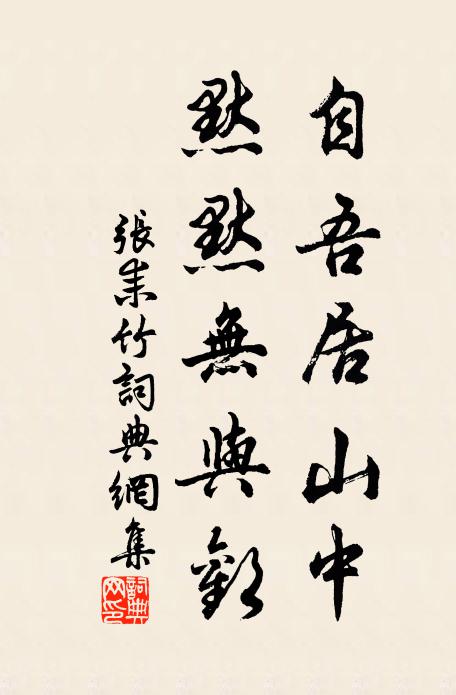 自吾居山中
默默無與歡
張耒竹詞典網集
詞典
网印